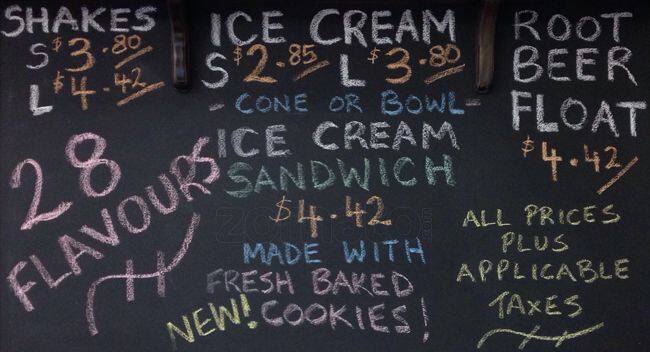 SHAKES
S $3.80
L $4.42
28
FLAVOURS
ICE CREAM
S $2.85 L $3.80
- CONE OR BOWL -
ICE CREAM
SANDWICH
$4.42
MADE WITH
FRESH BAKED
NEW! COOKIES!
ROOT
BEER
FLOAT
$4.42
ALL PRICES
PLUS
APPLICABLE
TAXES